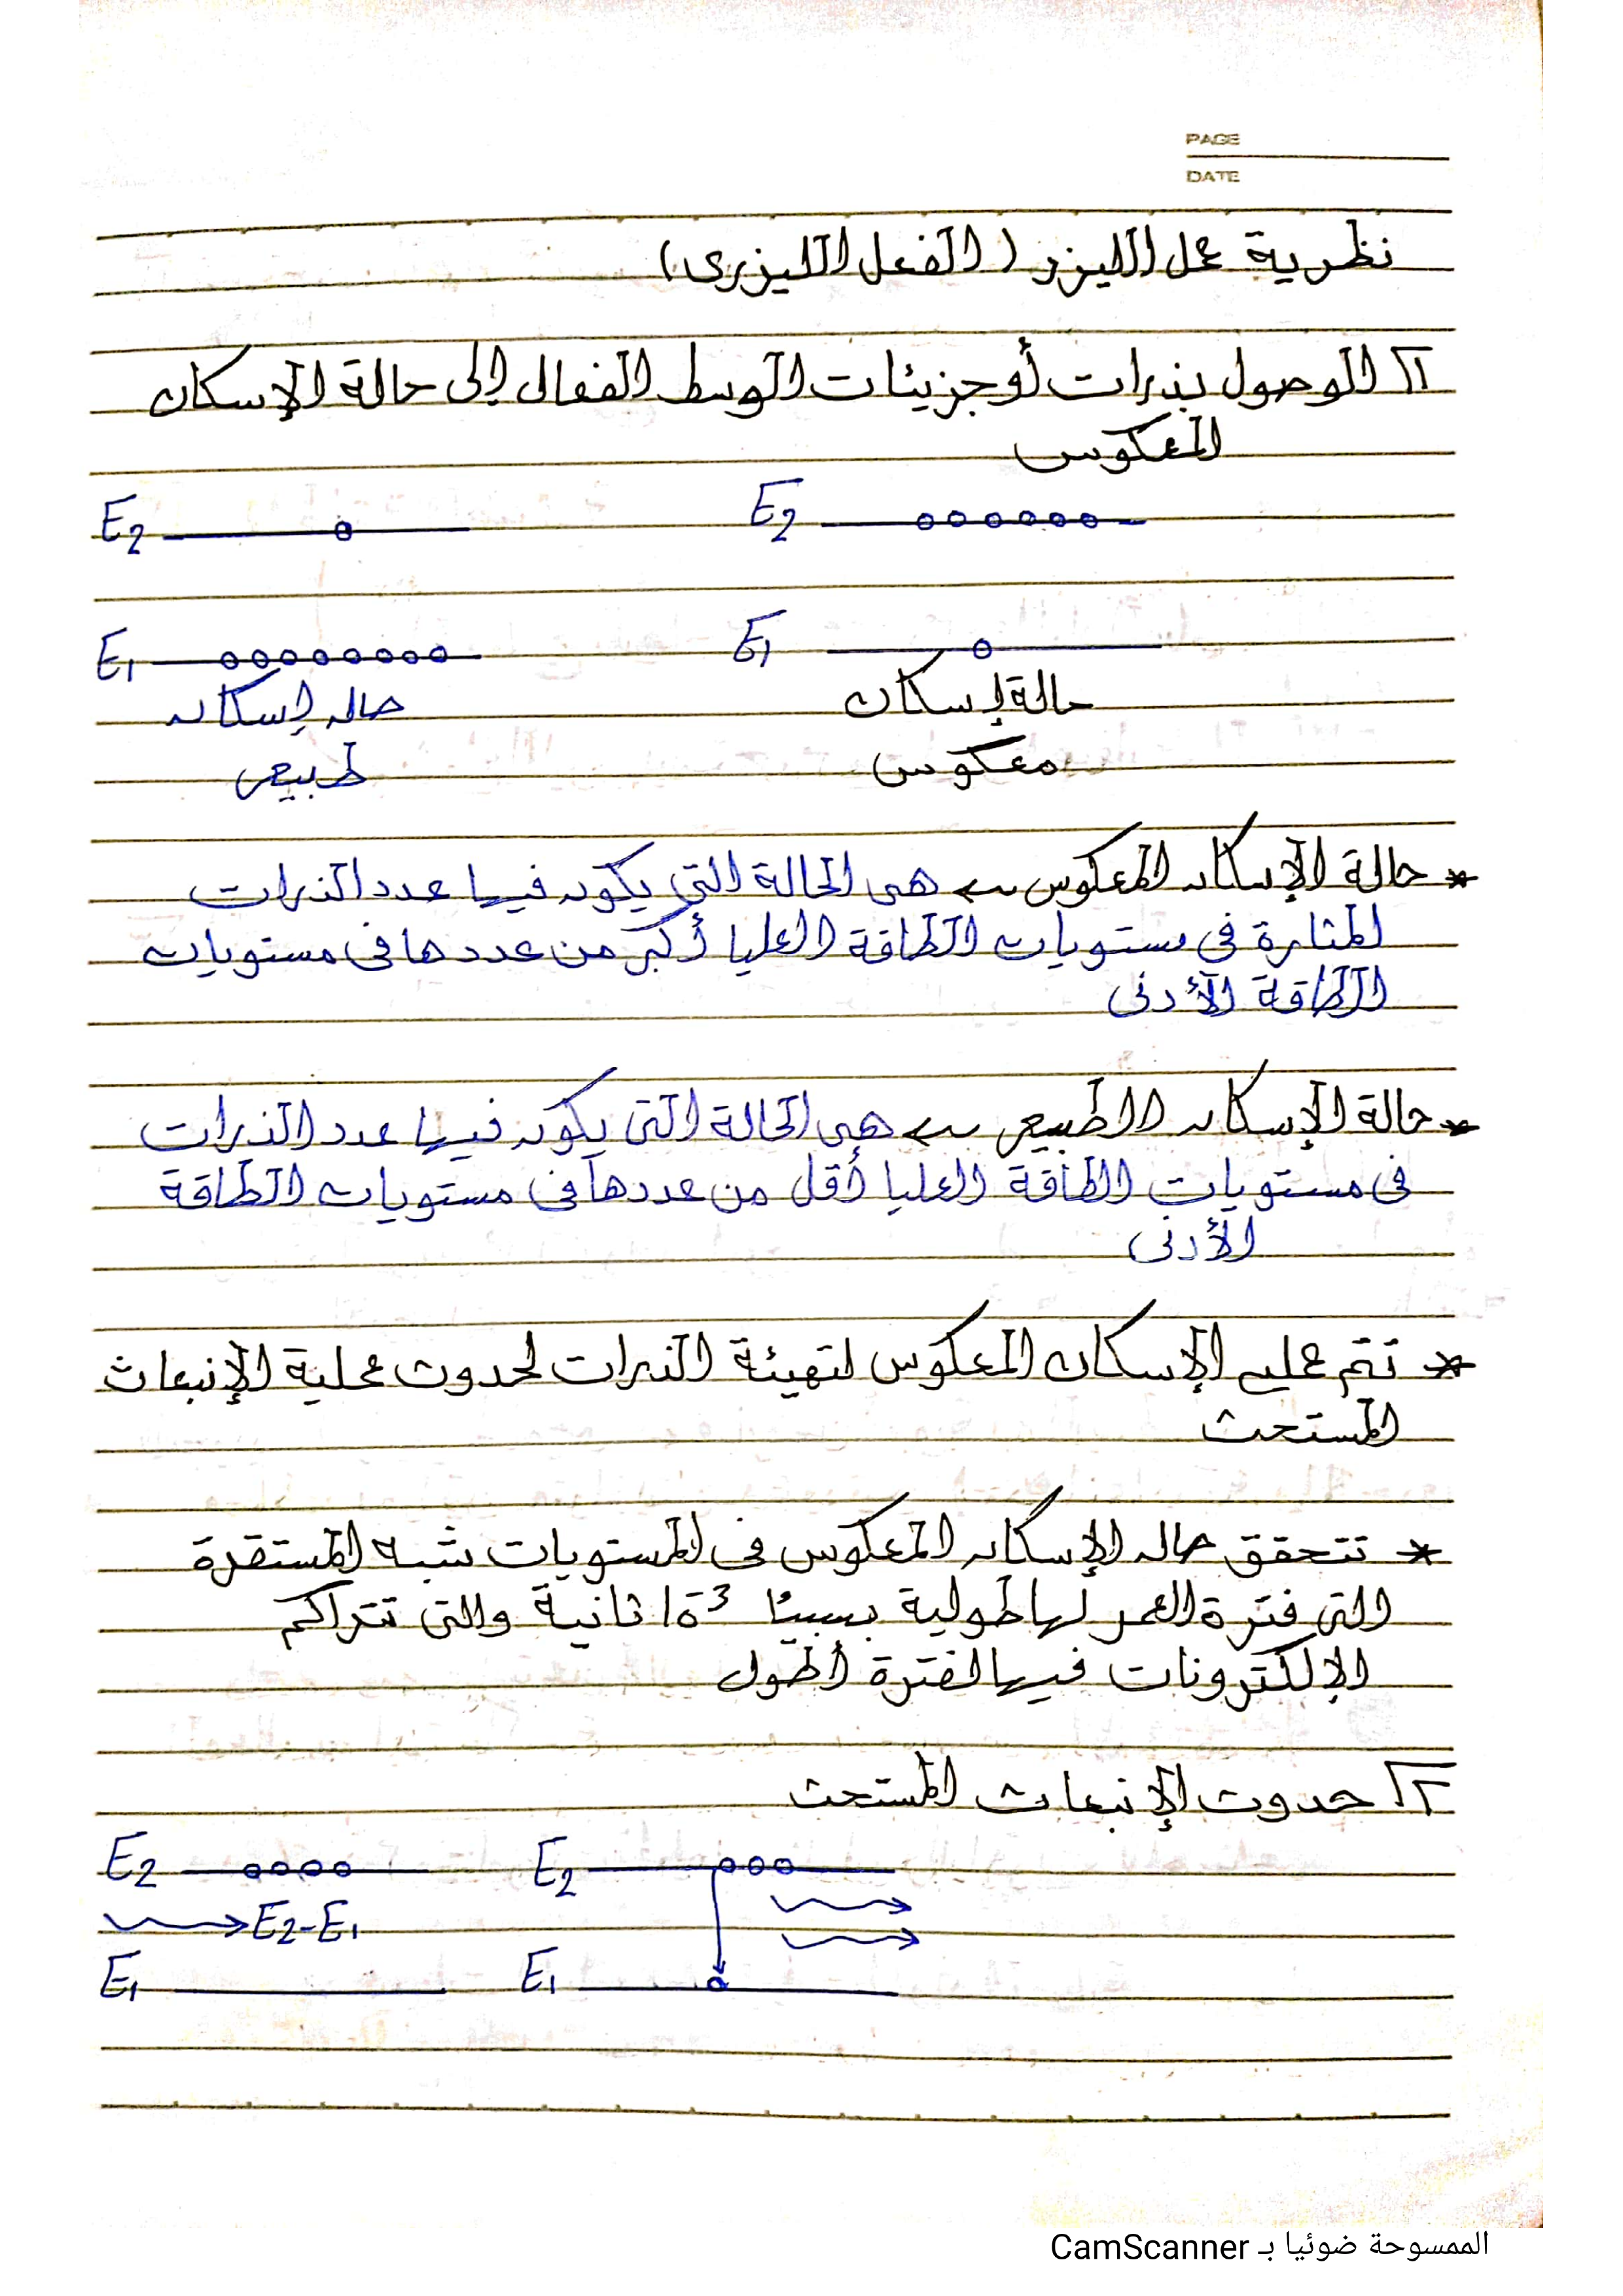 PAGE
DATE
نظرية عمل الليزر ( الفعل الليزرى )
١ الوصول بذرات أو جزيئات الوسط الفعال إلى حالة الإسكان
المعكوس
E2 E2
E1 E1
حالة إسكان حاله إسكان
معكوس طبيعى
* حالة الإسكان المعكوس ← هى الحالة التى يكون فيها عدد الذرات
المثارة فى مستويات الطاقة العليا أكبر من عددها فى مستويات
الطاقة الأدنى
* حالة الإسكان الطبيعى ← هى الحالة التى يكون فيها عدد الذرات
فى مستويات الطاقة العليا أقل من عددها فى مستويات الطاقة
الأدنى
* تتم عمليه الإسكان المعكوس لتهيئة الذرات لحدوث عملية الإنبعاث
المستحث
* تتحقق حاله الإسكان المعكوس فى المستويات شبه المستقرة
التى فترة العمر لها طولية ثانية والتى تتراكم
الإلكترونات فيها لفترة أطول
٢ حدوث الإنبعاث المستحث
E2 E2
E2-E1
E1 E1
الممسوحة ضوئيا بـ CamScanner